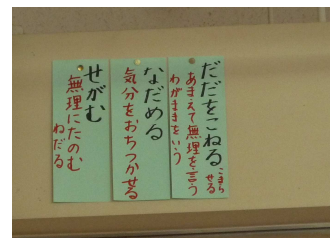 だだをこねる
こまらせる
あまえて無理を言う
わがままをいう
なだめる
気分をおちつかせる
せがむ
無理にたのむ
ねだる